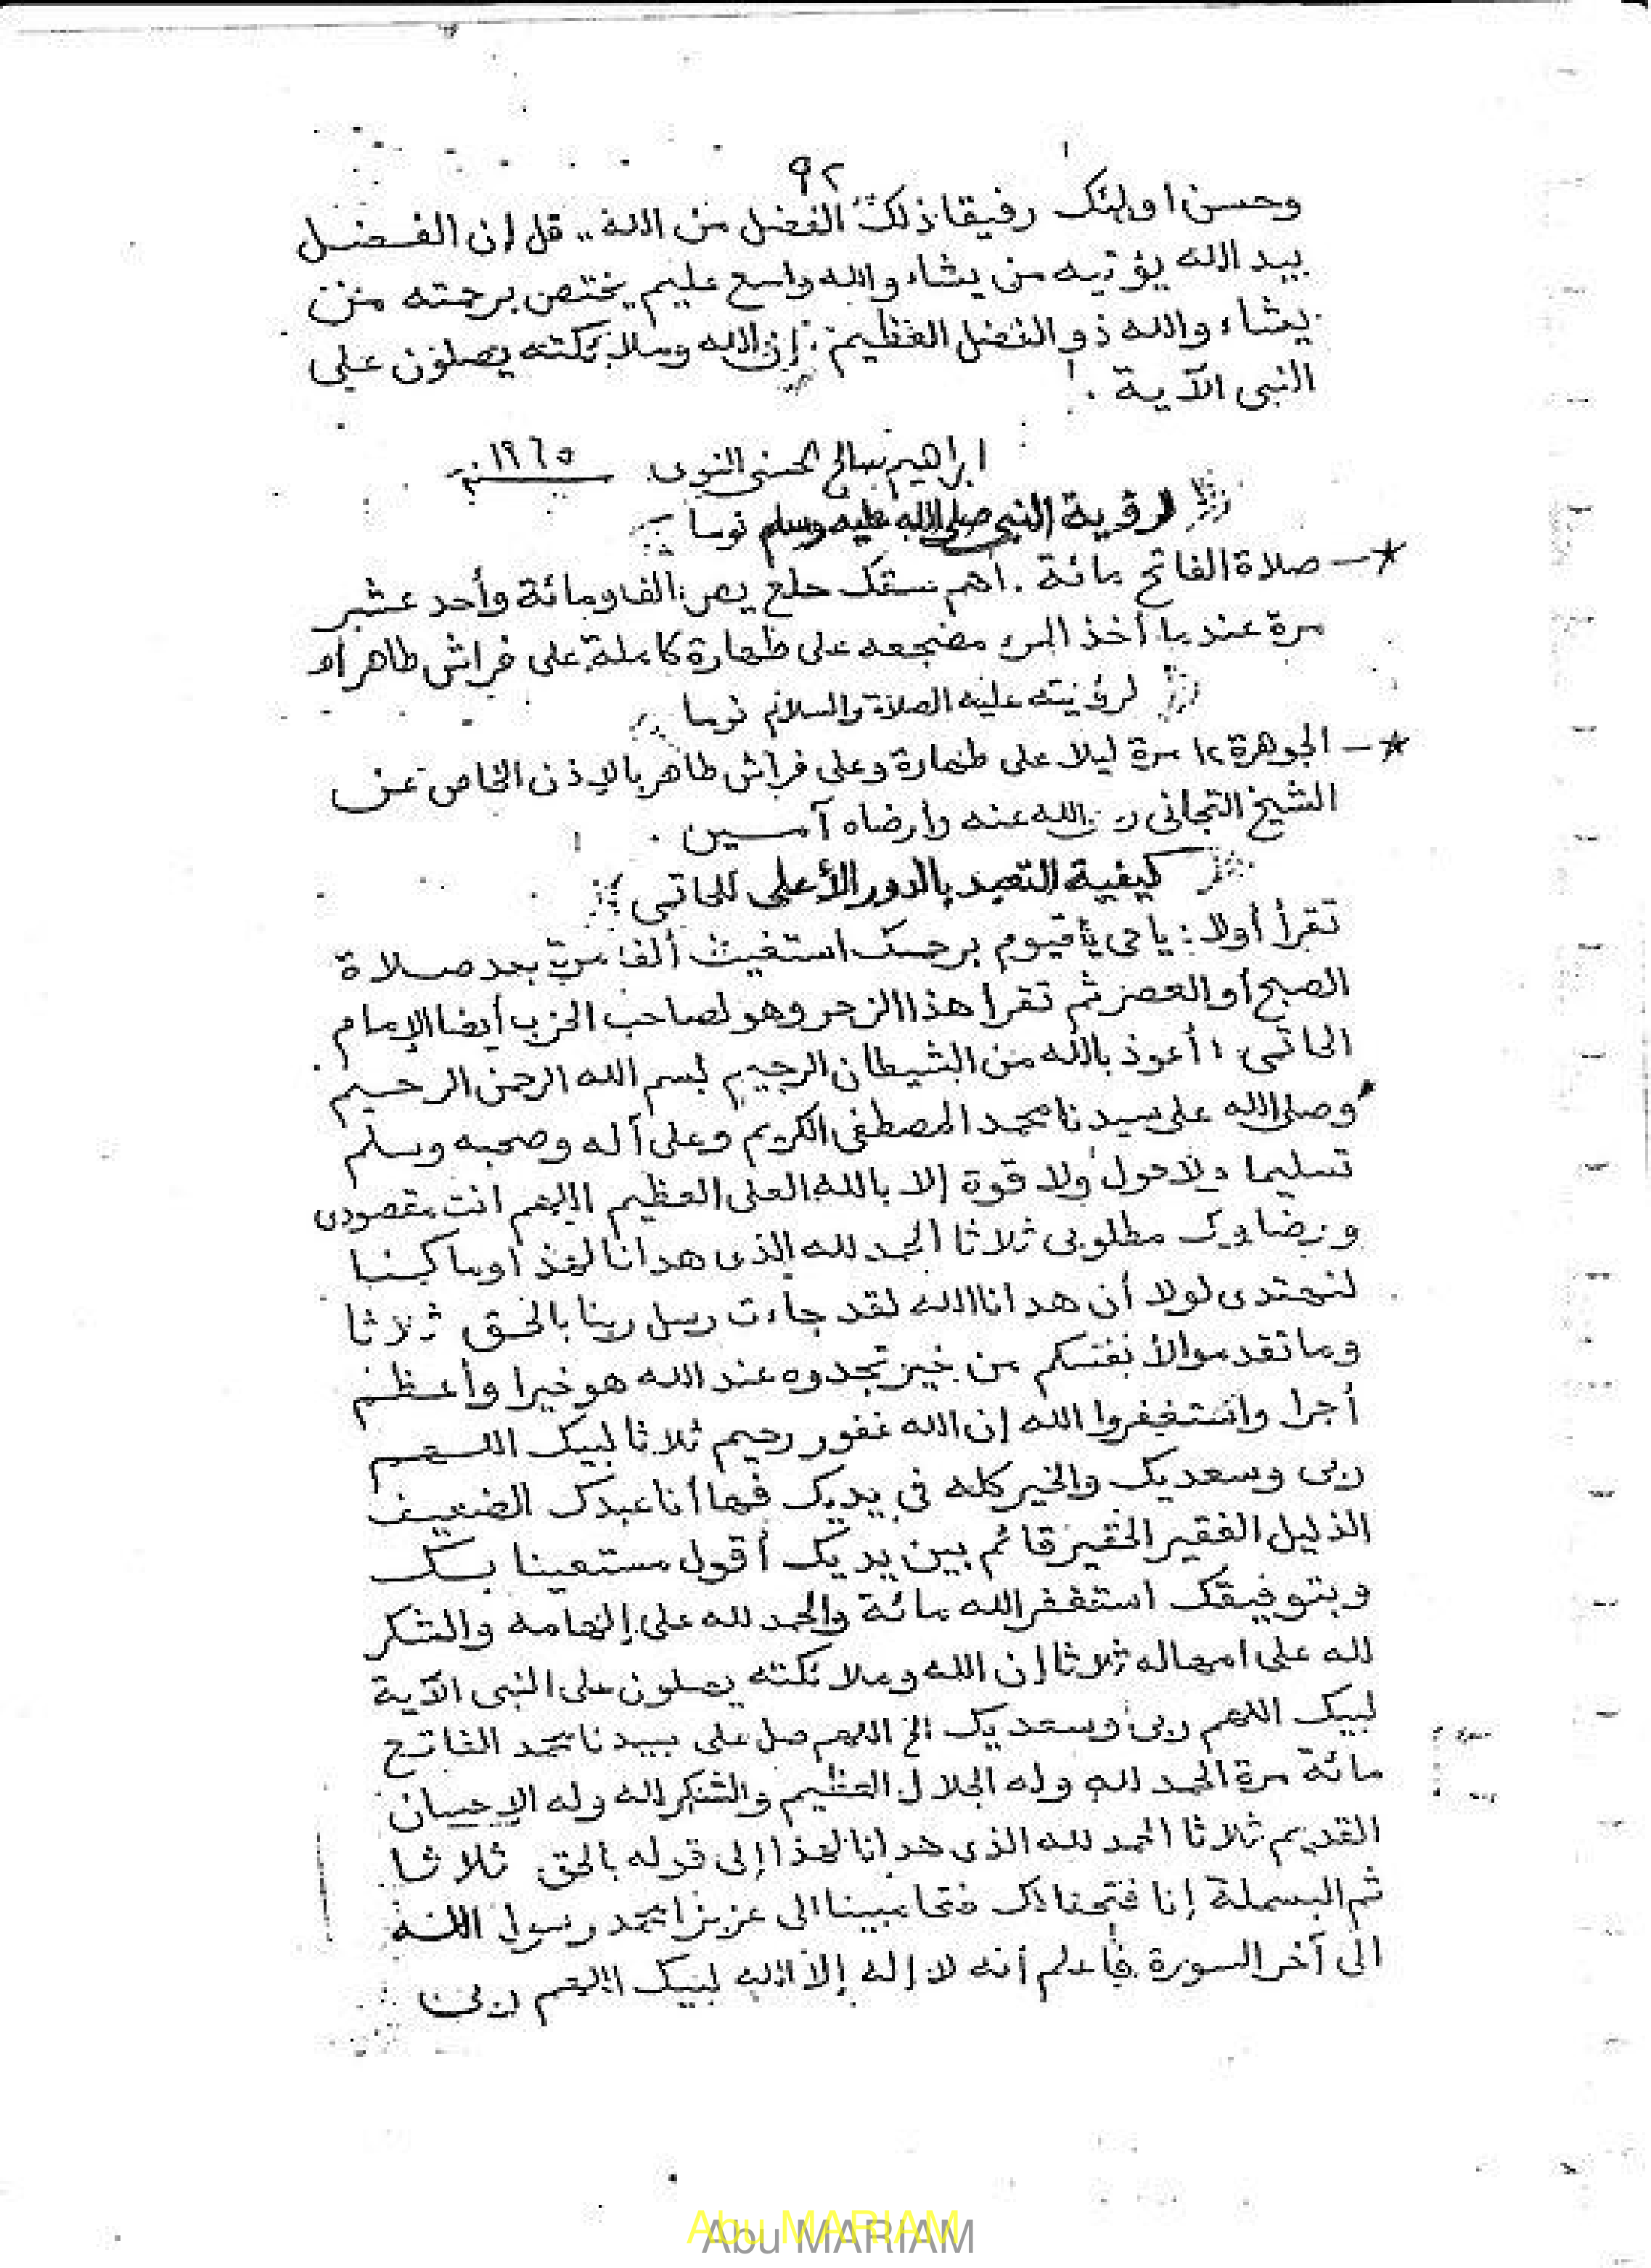 ٩٢
وحسن اولئك رفيقا ذلك الفضل من الله .. قل إن الفضل
بيد الله يؤتيه من يشاء والله واسع عليم يختص برحمته من
يشاء والله ذو الفضل العظيم : إن الله وملائكته يصلون على
النبى الآية .
ابراهيم صالح الحسنى النووى سنة ١٩٦٥
لرؤية النبى صلى الله عليه وسلم نوما
* – صلاة الفاتح مائة . أهم سقك حلع يص : الفا ومائة وأحد عشر
مرة عندما أخذ المرء مضجعه على طهارة كاملة على فراش طاهر أه
لرؤيته عليه الصلاة والسلام نوما
* – الجوهرة ١٢ مرة ليلا على طهارة وعلى فراش طاهر بالإذن الخاص عن
الشيخ التجانى ر الله عنه وارضاه آمــين .
كيفية التعبد بالدور الأعلى للحاتمى
تقرأ أولا : ياحى ياقيوم برحمتك استغيث ألف مرة بعد صلاة
الصبح أو العصر ثم تقرأ هذا الزجر وهو لصاحب الحزب أيضا الإمام
الحاتمى : أعوذ بالله من الشيطان الرجيم بسم الله الرحمن الرحيم
وصلى الله على سيدنا محمد المصطفى الكريم وعلى آله وصحبه وسلم
تسليما ولا حول ولا قوة إلا بالله العلى العظيم اللهم انت مقصودى
ورضاوك مطلوبى ثلاثا الحمد لله الذى هدانا لهذا وما كنا
لنهتدى لولا أن هدانا الله لقد جاءت رسل ربنا بالحق ثلاثا
وما تقدموا لأنفسكم من خير تجدوه عند الله هو خيرا وأعظم
أجرا واستغفروا الله إن الله غفور رحيم ثلاثا لبيك اللهم
ربى وسعديك والخير كله فى يديك فها أنا عبدك الضعيف
الذليل الفقير الحقير قائم بين يديك أقول مستعينا بك
وبتوفيقك استغفر الله مائة والحمد لله على إلهامه والشكر
لله على امهاله ثلاثا إن الله وملائكته يصلون على النبى الآية
لبيك اللهم ربى وسعديك الخ اللهم صل على سيدنا محمد الفاتح
مائة مرة الحمد لله وله الجلال العظيم والشكر لله وله الإحسان
القديم ثلاثا الحمد لله الذى هدانا لهذا إلى قوله بالحق ثلاثا
ثم البسملة إنا فتحنا لك فتحا مبينا الى عزيزا محمد رسول الله
الى آخر السورة فاعلم أنه لا إله إلا الله لبيك اللهم ربى
Abu MARIAM